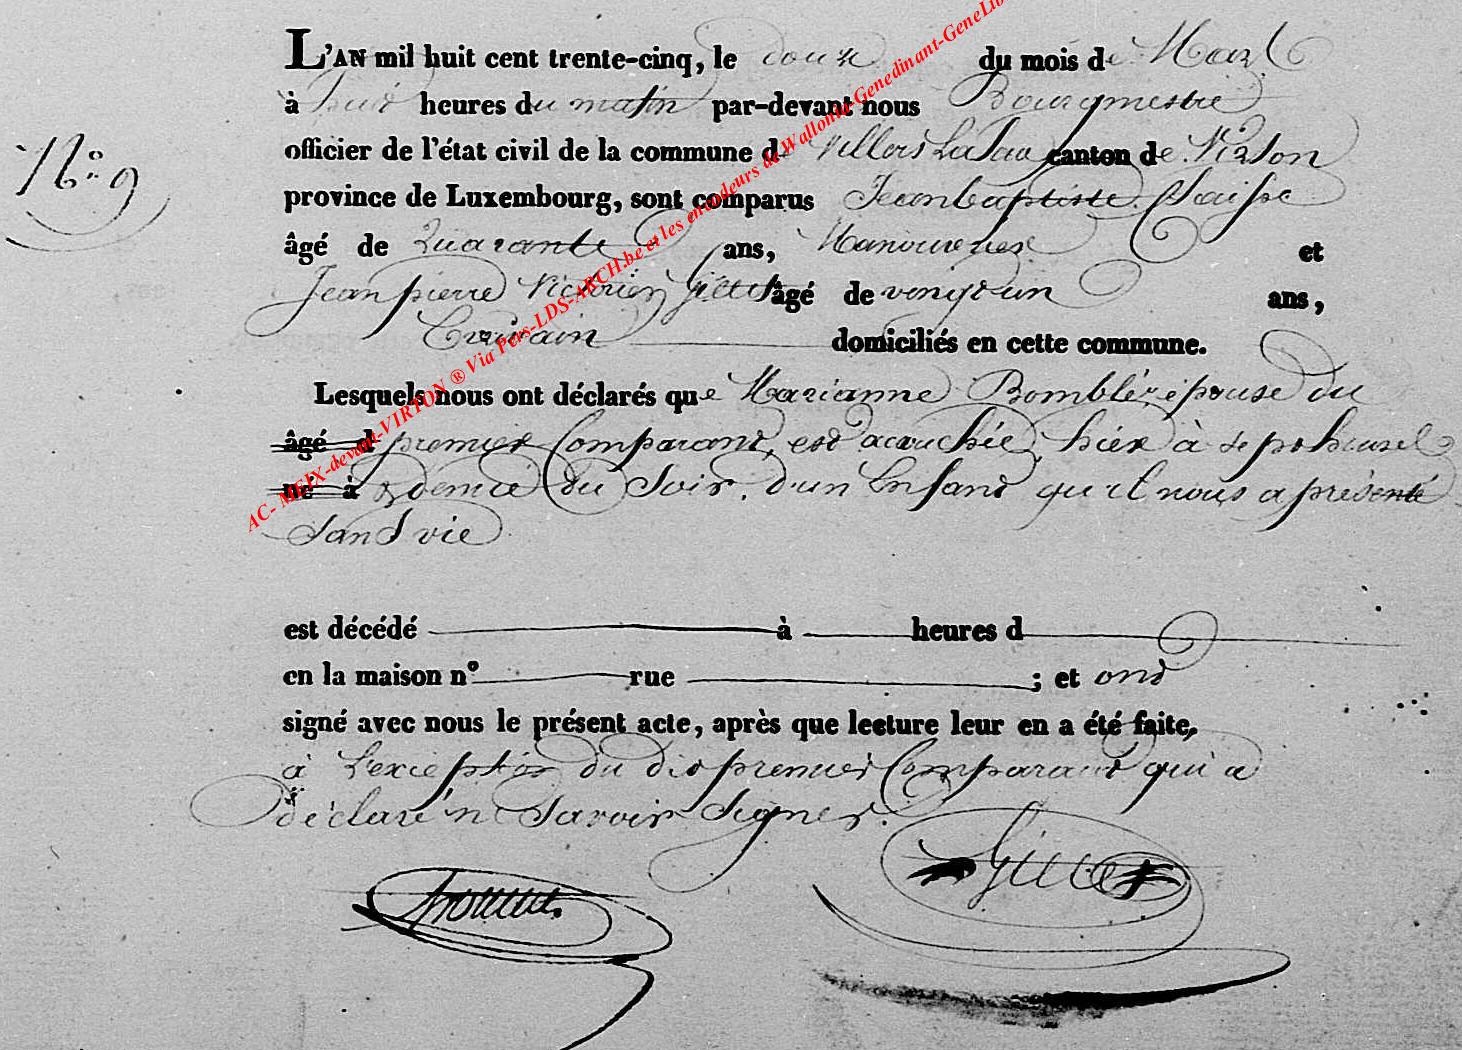 N°. 9
L'AN mil huit cent trente-cinq, le douze du mois de Mars
à huit heures du matin par-devant nous Bourgmestre
officier de l'état civil de la commune de Villers La Loue canton de Virton
province de Luxembourg, sont comparus Jeanbaptiste
âgé de Quarante ans, Manouvrier et
Jean pierre Victorien Gillet âgé de vingt un ans,
Ecrivain domiciliés en cette commune.
Lesquels nous ont déclarés que Marianne Bomblé épouse du
âgé d premier Comparant, est acouchée, hier à sept heures
né à & demie du Soir, d'un Enfant qu'il nous a présenté
Sans vie
est décédé à heures d
en la maison n° rue ; et ont
signé avec nous le présent acte, après que lecture leur en a été faite,
à L'exception du dit premier Comparant qui a
déclaré n Savoir Signer.
Gillet
AC- MEIX-devant-VIRTON ® Via Pers-LDS-ARCH.be et les encodeurs de Wallonia-Genedinant-GeneLib